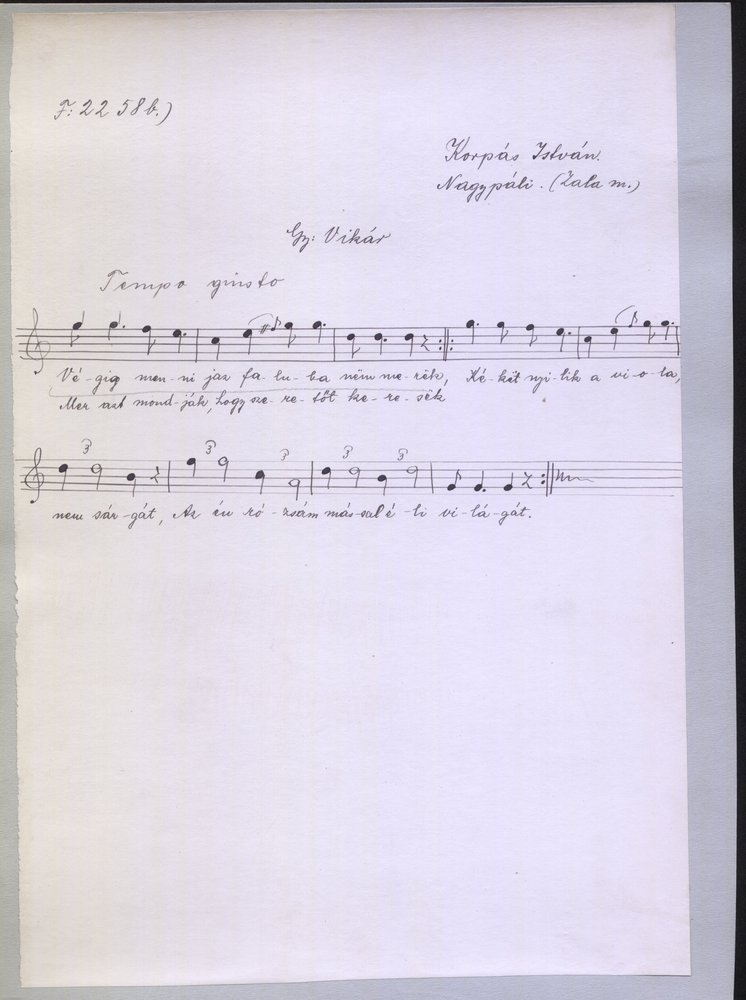 F: 22 58b.)
Korpás István.
Nagypáli. (Zala m.)
Gy: Vikár
Tempo giusto
Vé-gig men-ni jaz fa-lu-ba nëm me-rëk, Ké-két nyi-lik a vi-o-la,
Mer azt mond-ják, hogy sze-re-tőt ke-re-sëk
3 3 3 3
nem sár-gát, Az én ró-zsám más-sal é-li vi-lá-gát.